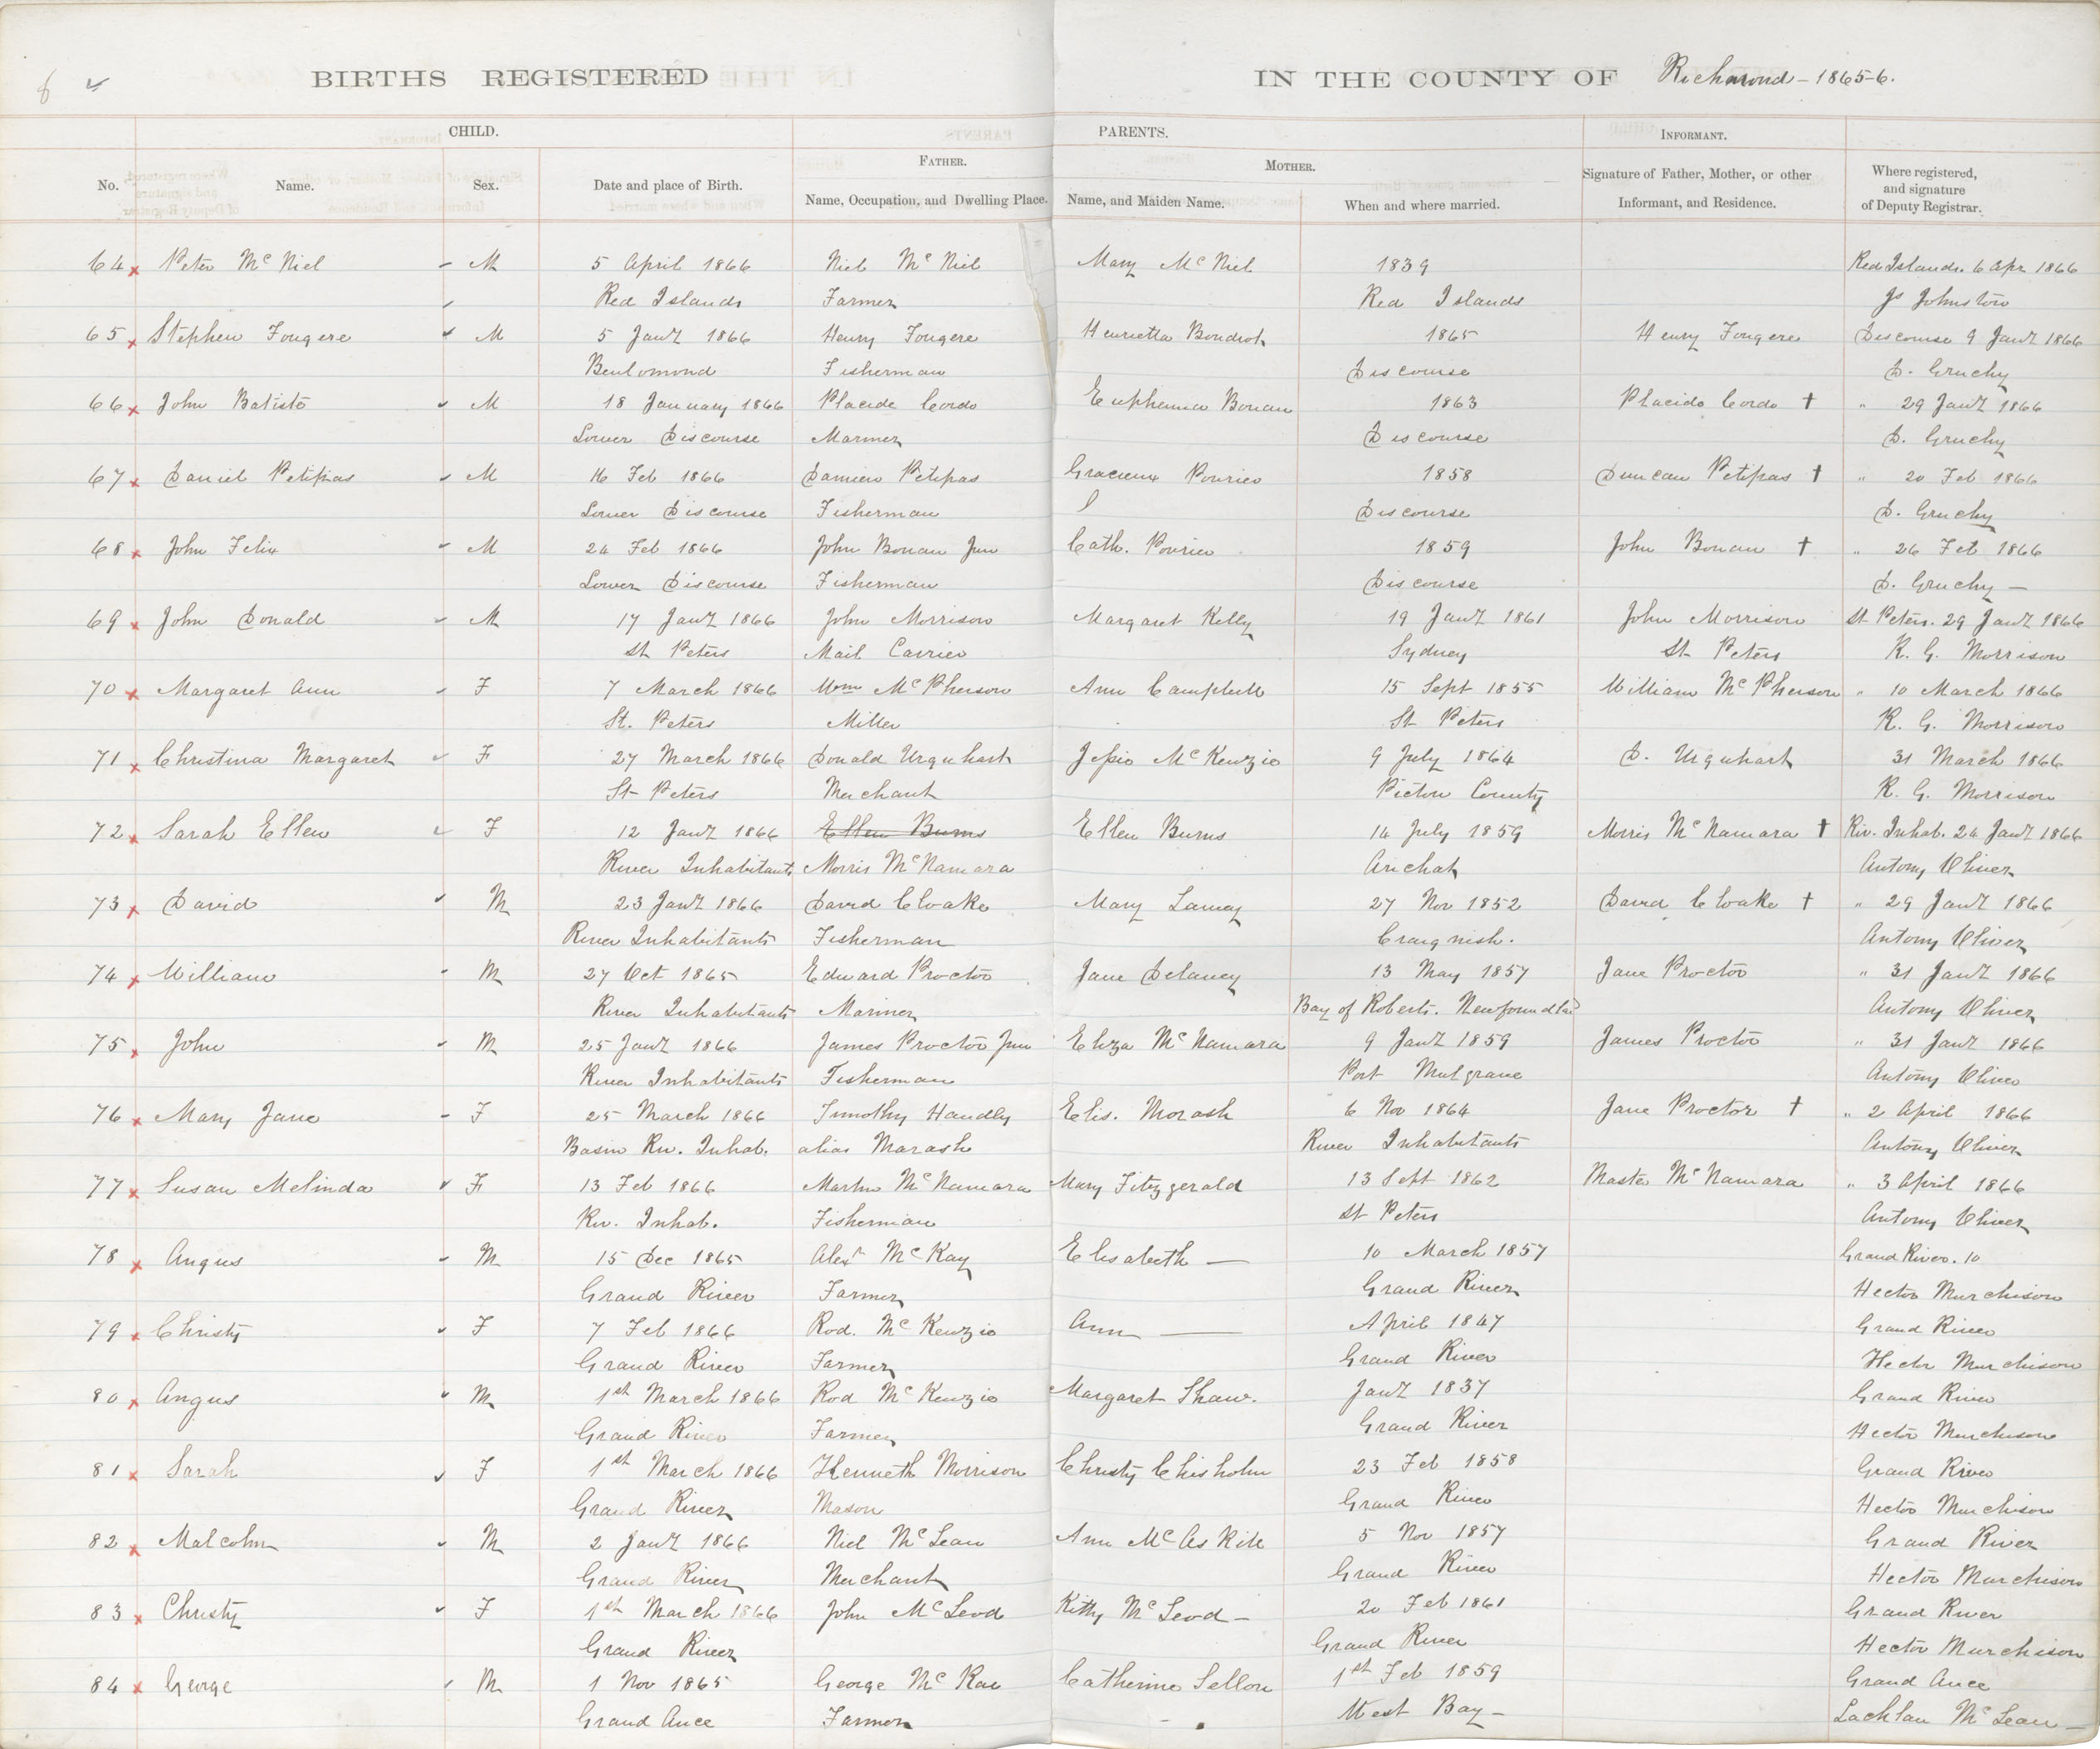 8 ✓
BIRTHS REGISTERED IN THE COUNTY OF Richmond - 1865-6.
CHILD. PARENTS. INFORMANT.
FATHER. MOTHER.
No. Name. Sex. Date and place of Birth. Name, Occupation, and Dwelling Place. Name, and Maiden Name. When and where married. Signature of Father, Mother, or other Informant, and Residence. Where registered, and signature of Deputy Registrar.
64 x Peter McNiel - M 5 April 1866 Niel McNiel Mary McNiel 1839 Red Islands. 6 Apr 1866
Red Islands Farmer Red Islands Js Johnston
65 x Stephen Fougere ✓ M 5 Jany 1866 Henry Fougere Henrietta Boudrot 1865 Henry Fougere Discouse 9 Jany 1866
Benlomond Fisherman Discouse D. Gruchy
66 x John Batiste ✓ M 18 January 1866 Placide Cordo Euphemia Bonan 1863 Placide Cordo † " 29 Jany 1866
Lower Discourse Mariner Discourse D. Gruchy
67 x Daniel Petipas ✓ M 16 Feb 1866 Damien Petipas Gracieux Pourier 1858 Duncan Petipas † " 20 Feb 1866
Lower Discourse Fisherman Discourse D. Gruchy
68 x John Felix ✓ M 24 Feb 1866 John Bonan Jun Cath. Pourier 1859 John Bonan † " 26 Feb 1866
Lower Discourse Fisherman Discourse D. Gruchy -
69 x John Donald ✓ M 17 Jany 1866 John Morrison Margaret Kelly 19 Jany 1861 John Morrison St Peters. 29 Jany 1866
St Peters Mail Carrier Sydney St Peters R. G. Morrison
70 x Margaret Ann ✓ F 7 March 1866 Wm McPherson Ann Campbell 15 Sept 1855 William McPherson " 10 March 1866
St. Peters Miller St Peters R. G. Morrison
71 x Christina Margaret ✓ F 27 March 1866 Donald Urquhart Jessie McKenzie 9 July 1864 D. Urquhart 31 March 1866
St Peters Merchant Pictou County R. G. Morrison
72 x Sarah Ellen ✓ F 12 Jany 1866 Ellen Burns Ellen Burns 14 July 1859 Morris McNamara † Riv. Inhab. 24 Jany 1866
River Inhabitants Morris McNamara Arichat Antony Oliver
73 x David ✓ M 23 Jany 1866 David Cloake Mary Lamey 27 Nov 1852 David Cloake † " 29 Jany 1866
River Inhabitants Fisherman Craignish. Antony Oliver
74 x William - M 27 Oct 1865 Edward Proctor Jane Delaney 13 May 1857 Jane Proctor " 31 Jany 1866
River Inhabitants Mariner Bay of Roberts. Newfoundland Antony Oliver
75 x John ✓ M 25 Jany 1866 James Proctor Jun Eliza McNamara 9 Jany 1859 James Proctor " 31 Jany 1866
River Inhabitants Fisherman Port Mulgrave Antony Oliver
76 x Mary Jane - F 25 March 1866 Timothy Handly Elis. Morash 6 Nov 1864 Jane Proctor † " 2 April 1866
Basin Riv. Inhab. alias Marash River Inhabitants Antony Oliver
77 x Susan Melinda ✓ F 13 Feb 1866 Martin McNamara Mary Fitzgerald 13 Sept 1862 Master McNamara " 3 April 1866
Riv. Inhab. Fisherman St Peters Antony Oliver
78 x Angus - M 15 Dec 1865 Alexr McKay Elisabeth — 10 March 1857 Grand River. 10
Grand River Farmer Grand River Hector Murchison
79 x Christy ✓ F 7 Feb 1866 Rod. McKenzie Ann — April 1847 Grand River
Grand River Farmer Grand River Hector Murchison
80 x Angus ✓ M 1st March 1866 Rod McKenzie Margaret Shaw. Jany 1837 Grand River
Grand River Farmer Grand River Hector Murchison
81 x Sarah ✓ F 1st March 1866 Kenneth Morrison Christy Chisholm 23 Feb 1858 Grand River
Grand River Mason Grand River Hector Murchison
82 x Malcolm ✓ M 2 Jany 1866 Niel McLean Ann McAskile 5 Nov 1857 Grand River
Grand River Merchant Grand River Hector Murchison
83 x Christy ✓ F 1st March 1866 John McLeod Kitty McLeod - 20 Feb 1861 Grand River
Grand River Grand River Hector Murchison
84 x George ✓ M 1 Nov 1865 George McRae Catherine Sellon 1st Feb 1859 Grand Ance
Grand Ance Farmer West Bay - Lachlan McLean -